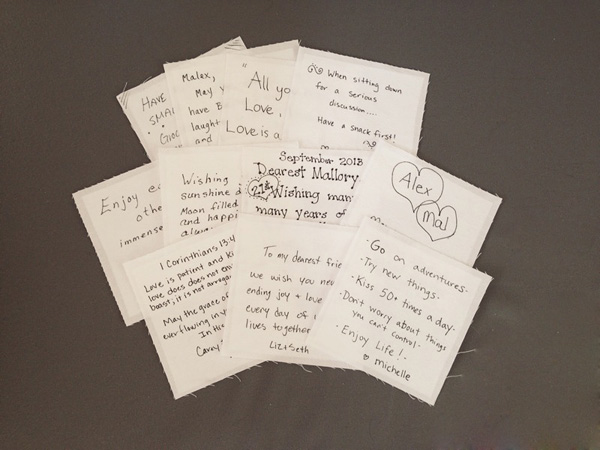 HAVE
SMAL
Malex,
May y
have B
laught
and
"
All yo
Love,
Love is a
When sitting down
for a serious
discussion....
Have a snack first!
Enjoy ea
othe
immense
Wishing
sunshine d
Moon filled
and happi
September 2013
Dearest Mallory
21st
Wishing man
many years of
Alex
mal
1 Corinthians 13:4
Love is patient and ki
love does not en
boast, it is not arroga
May the grace of
ever flowing in y
In His
To my dearest frie
we wish you nev
ending joy & love
every day of
lives together
Liz+Seth
·Go on adventures·
·Try new things·
·Kiss 50+ times a day·
·Don't worry about things
you can't control·
·Enjoy Life!·
♡ michelle